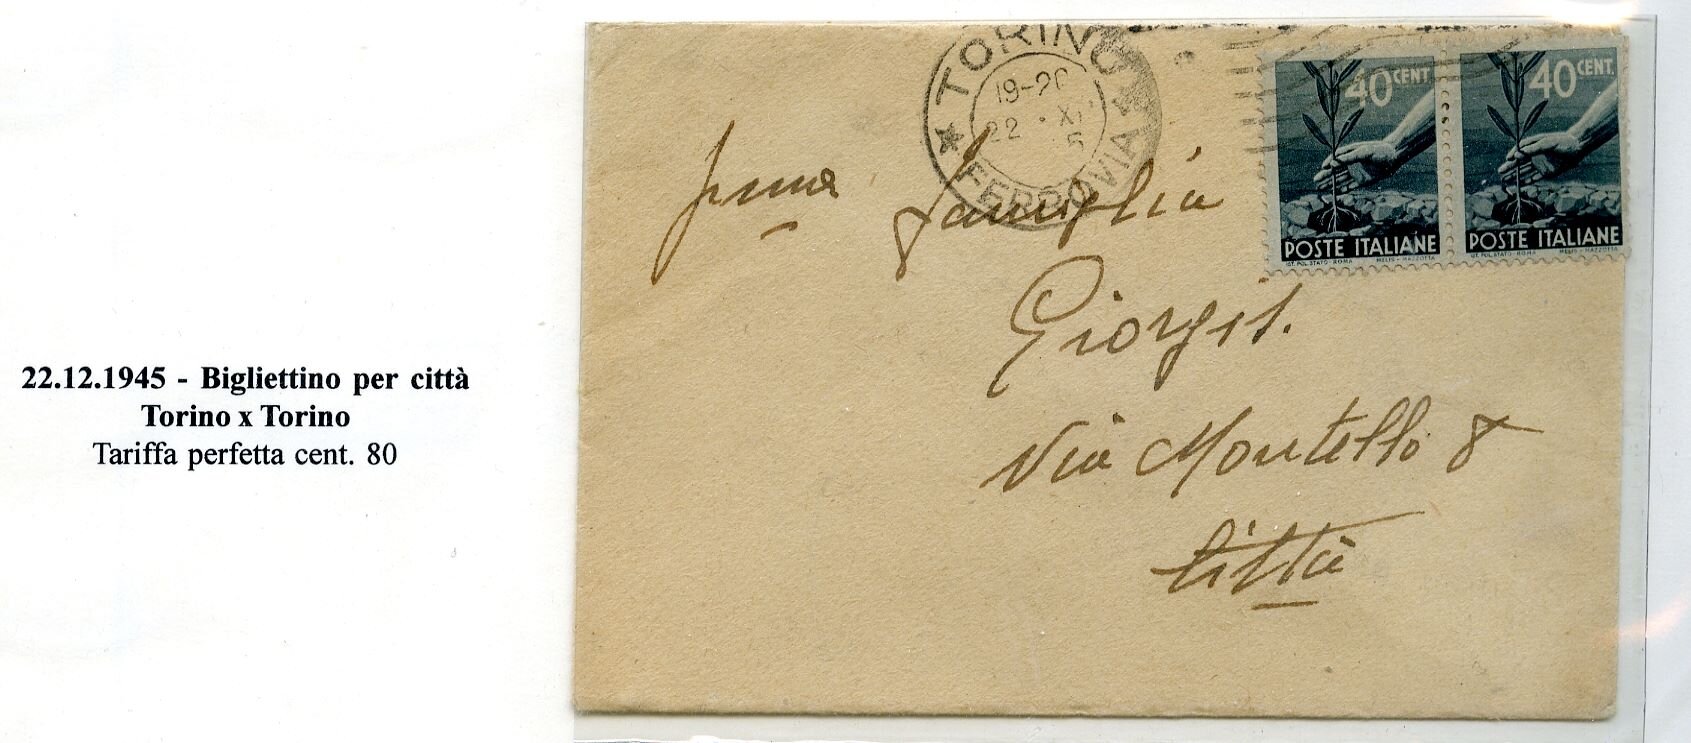 22.12.1945 - Bigliettino per città
Torino x Torino
Tariffa perfetta cent. 80
TORINO
19-20
22 · XI
5
FERROVIA
40 CENT
POSTE ITALIANE
IST. POL. STATO - ROMA MELIS - MAZZOTTA
40 CENT.
POSTE ITALIANE
IST. POL. STATO - ROMA MELIS - MAZZOTTA
famiglia
Giorgis.
Via Montello 8
Città